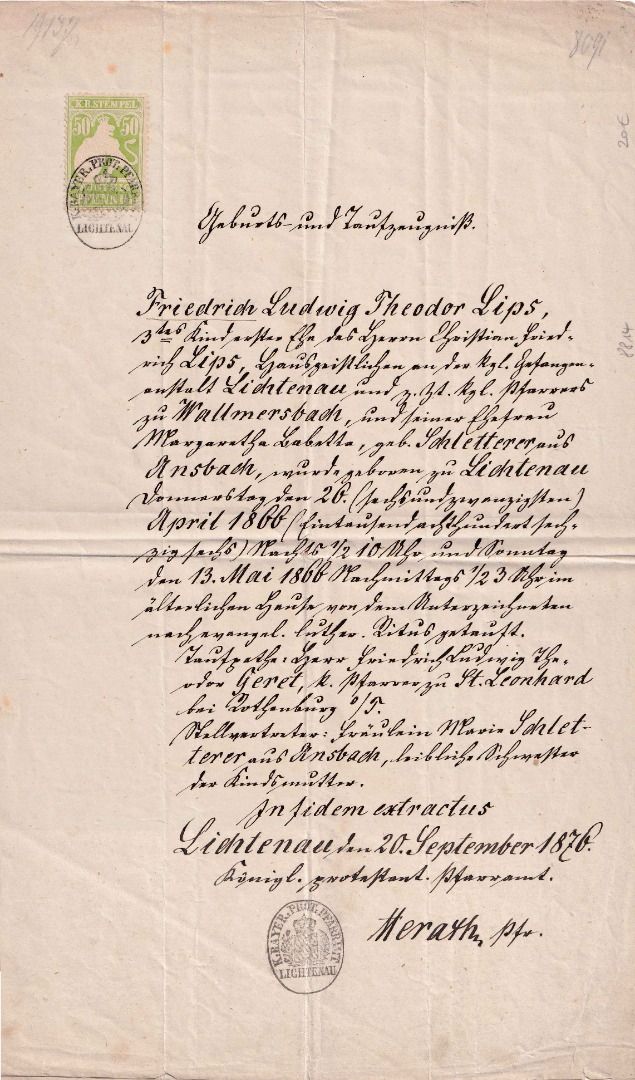 K.B.STEMPEL
50 50
PFENNIG
K.BAYER.PROT.PFARRAMT
LICHTENAU
8091
20€
Geburts- und Taufzeugniß.
Friedrich Ludwig Theodor Lips,
3tes Kind erster Ehe des Herrn Christian Fried-
rich Lips, Hausgeistlichen an der kgl. Gefangen-
anstalt Lichtenau und z. Zt. kgl. Pfarrers
zu Wallmersbach, und seiner Ehefrau
Margaretha Babetta, geb. Schletterer aus
Ansbach, wurde geboren zu Lichtenau
Donnerstag den 26. (sechsundzwanzigsten)
April 1866 (Eintausendachthundert sech-
zig sechs) Nachts 1/2 10 Uhr und Sonntag
den 13. Mai 1866 Nachmittags 1/2 3 Uhr im
älterlichen Hause von dem Unterzeichneten
nach evangel. luther. Ritus getauft.
Taufpathe: Herr Friedrich Ludwig The-
odor Geret, k. Pfarrer zu St. Leonhard
bei Rothenburg o/T.
Stellvertreter: Fräulein Marie Schlet-
terer aus Ansbach, leibliche Schwester
der Kindsmutter.
In fidem extractus
Lichtenau den 20. September 1876.
Königl. protestant. Pfarramt.
Merath, Pfr.
K.BAYER.PROT.PFARRAMT
LICHTENAU